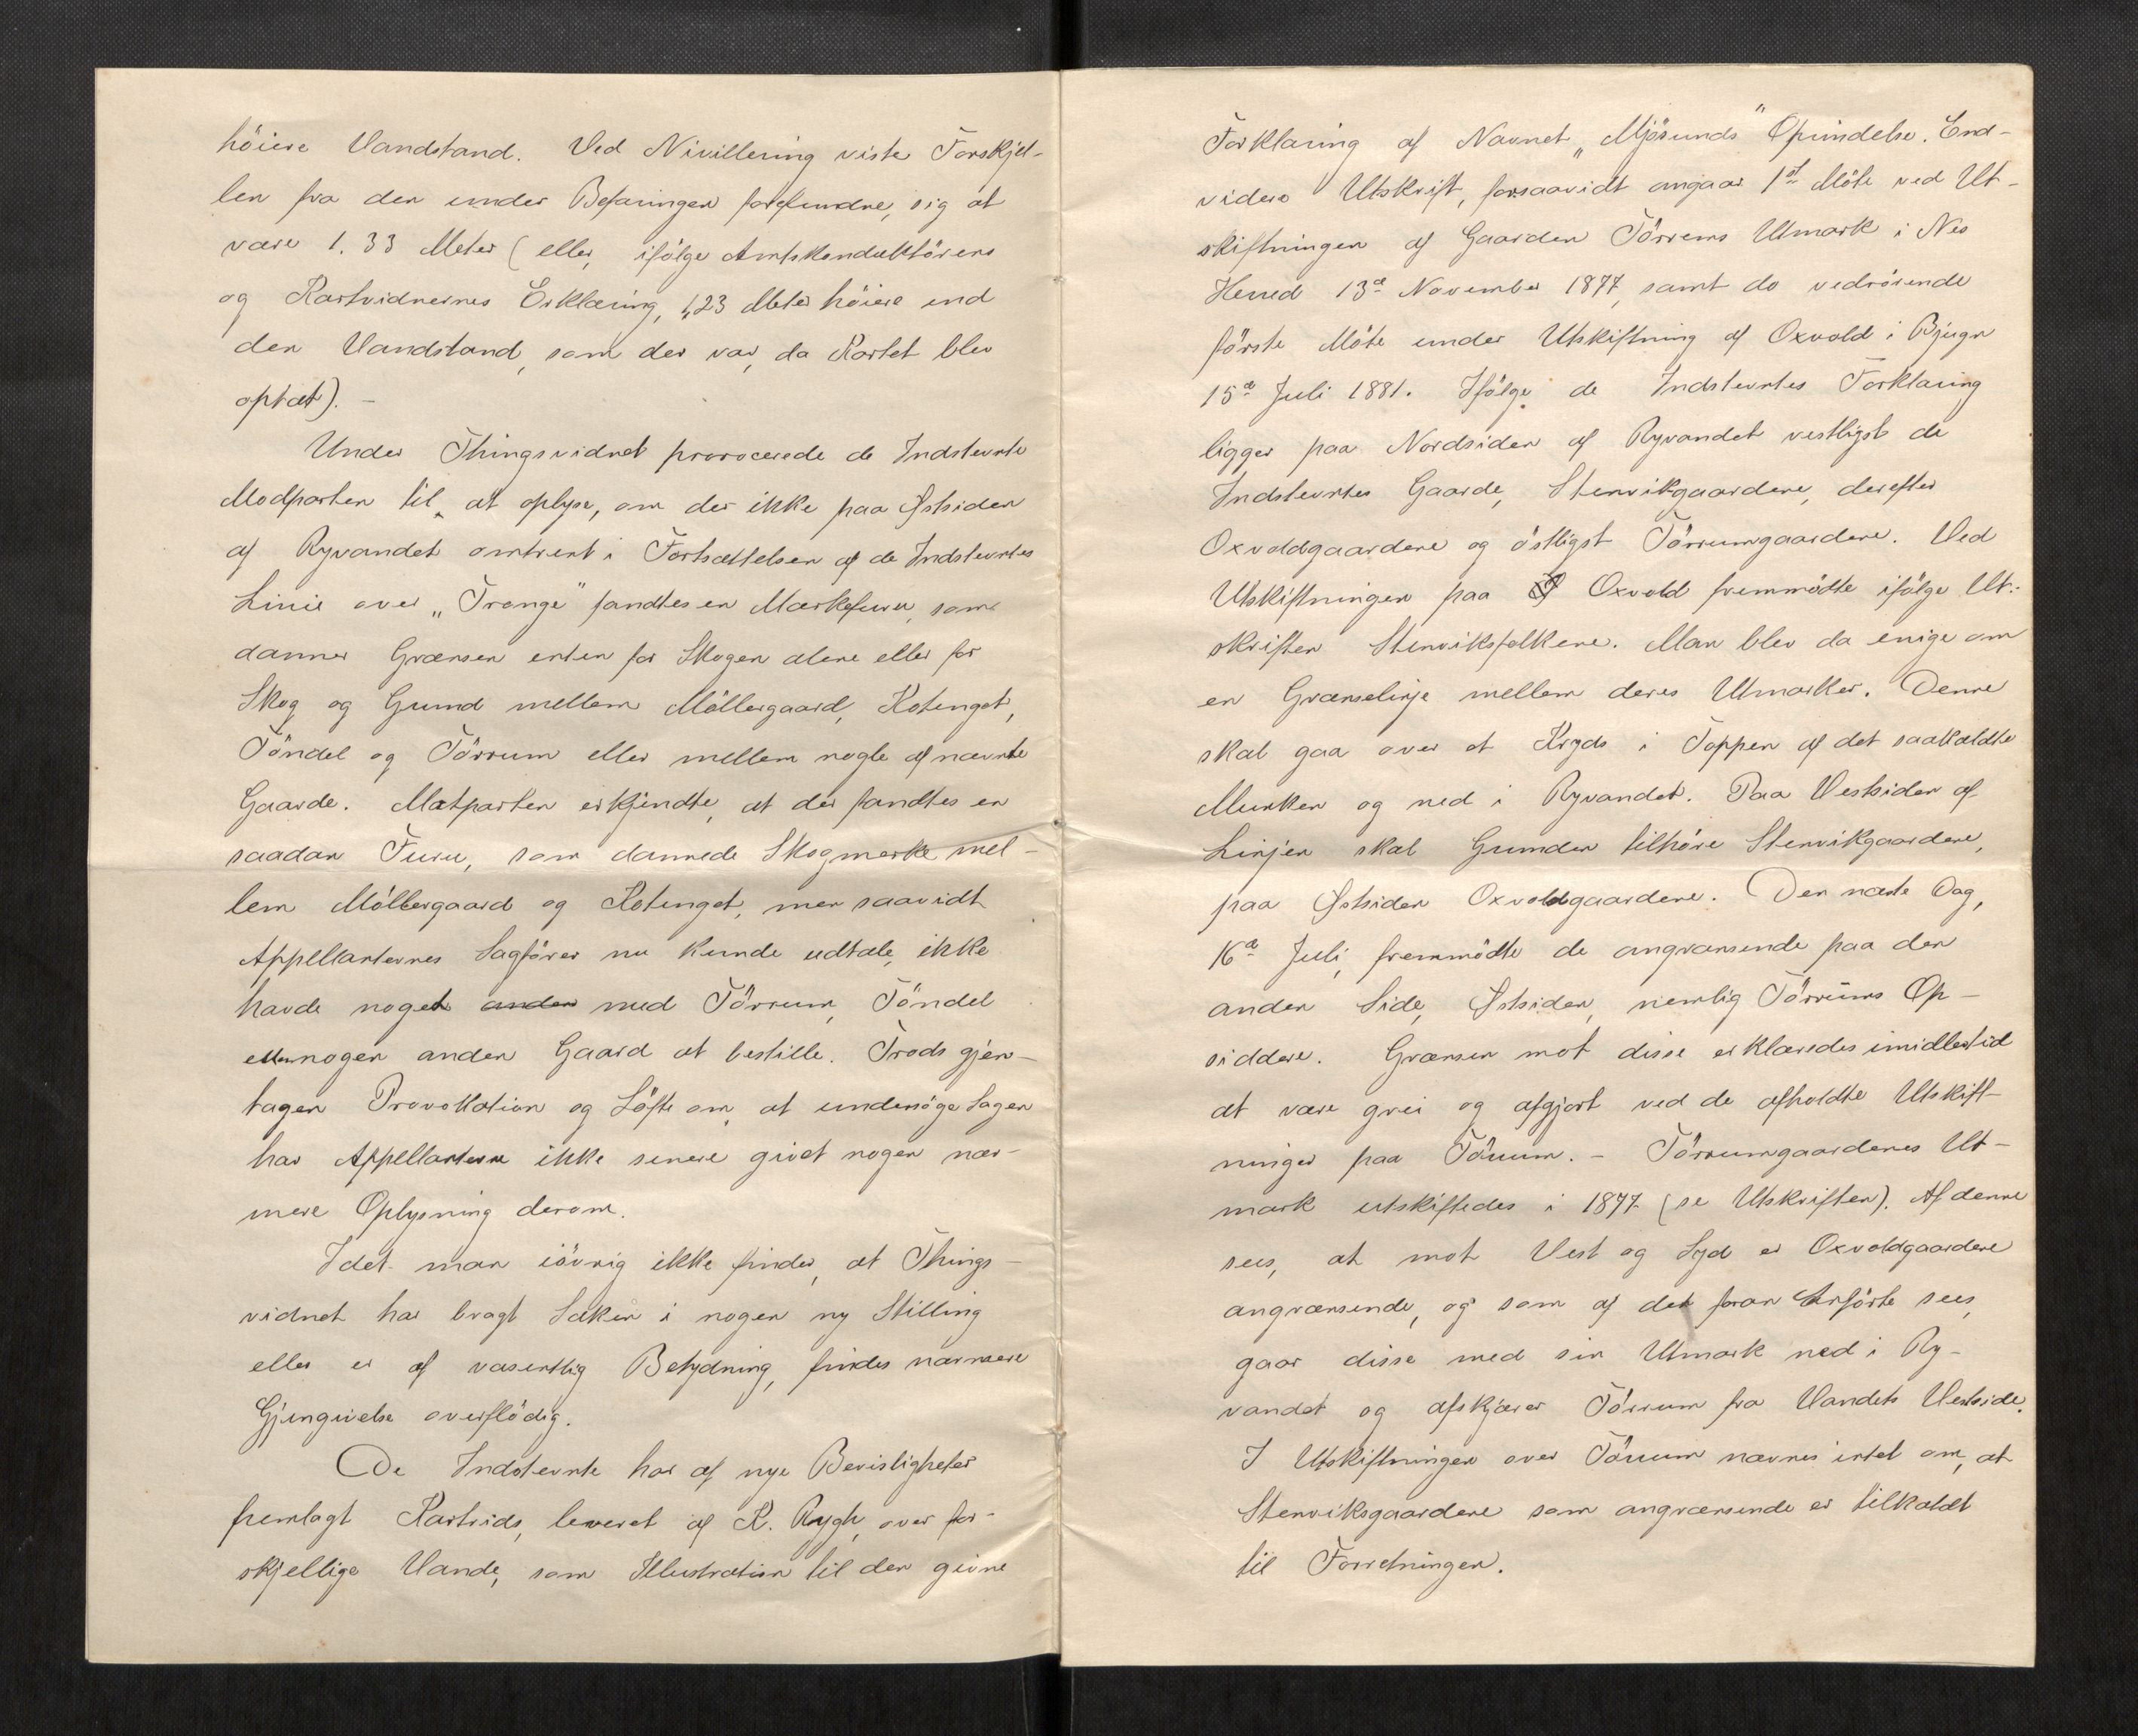 höiere Vandstand. Ved Nivillering viste Forskjel-
len fra den under Befaringen forefundne, sig at
være 1.33 Meter (eller, ifölge Amtskonduktörens
og Kartvidnernes Erklæring, 1,23 Meter höiere end
den Vandstand, som der var, da Kartet blev
optat). -
Under Thingsvidnet provocerede de Indstevnte
Modparten til, at oplyse, om der ikke paa Østsiden
af Ryvandet omtrent i Fortsættelsen af de Indstevntes
Linie over „Trange" fandtes en Mærkefuru, som
danner Grænsen enten for Skogen alene eller for
Skog og Grund mellem Möllergaard, Kotenget,
Töndel og Törrum eller mellem nogle af nævnte
Gaarde. Motparten erkjendte, at der fandtes en
saadan Furu, som dannede Skogmerke mel-
lem Möllergaard og Kotenget, men saavidt
Appellanternes Sagförer nu kunde udtale, ikke
havde noget anden med Törrum, Töndel
eller nogen anden Gaard at bestille. Trods gjen-
tagen Provokation og Löfte om, at undersöge Sagen
har Appellanterne ikke senere givet nogen nær-
mere Oplysning derom.
Idet man iövrig ikke finder, at Things-
vidnet har bragt Saken i nogen ny Stilling
eller er af væsentlig Betydning, findes nærmere
Gjengivelse overflödig.
De Indstevnte har af nye Bevisligheter
fremlagt Kartrids, leveret af K. Rygh, over for-
skjellige Vande, som Illustration til den givne
Forklaring af Navnet „Mjösunds" Oprindelse. End-
videre Utskrift, forsaavidt angaar 1st Möte ved Ut-
skiftningen af Gaarden Törrems Utmark i Nes
Herred 13de November 1877, samt do vedrörende
förste Möte under Utskiftning af Oxvold i Bjugn
15de Juli 1881. Ifölge de Indstevntes Forklaring
ligger paa Nordsiden af Ryvandet vestligst de
Indstevntes Gaarde, Stenvikgaardene, derefter
Oxvoldgaardene og östligst Törrumgaardene. Ved
Utskiftningen paa Oxvold fremmödte ifölge Ut-
skriften Stenviksfolkene. Man blev da enige om
en Grænselinje mellem deres Utmarker. Denne
skal gaa over et Kryds i Toppen af det saakaldte
Munken og ned i Ryvandet. Paa Vestsiden af
Linjen skal Grunden tilhöre Stenvikgaardene,
paa Østsiden Oxvoldgaardene. Den næste Dag,
16de Juli, fremmödte de angrænsende paa den
anden Side, Østsiden, nemlig Törrums Op-
siddere. Grænsen mot disse erklæredes imidlertid
at være grei og afgjort ved de afholdte Utskift-
ninger paa Törrum. - Törrumgaardenes Ut-
mark utskiftedes i 1877 (se Utskriften). Af denne
sees, at mot Vest og Syd er Oxvoldgaardene
angrænsende, og som af det foran Anförte sees,
gaar disse med sin Utmark ned i Ry-
vandet og afskjærer Törrum fra Vandets Vestside.
I Utskiftningen over Törrum nævnes intet om, at
Stenviksgaardene som angrænsende er tilkaldt
til Forretningen.